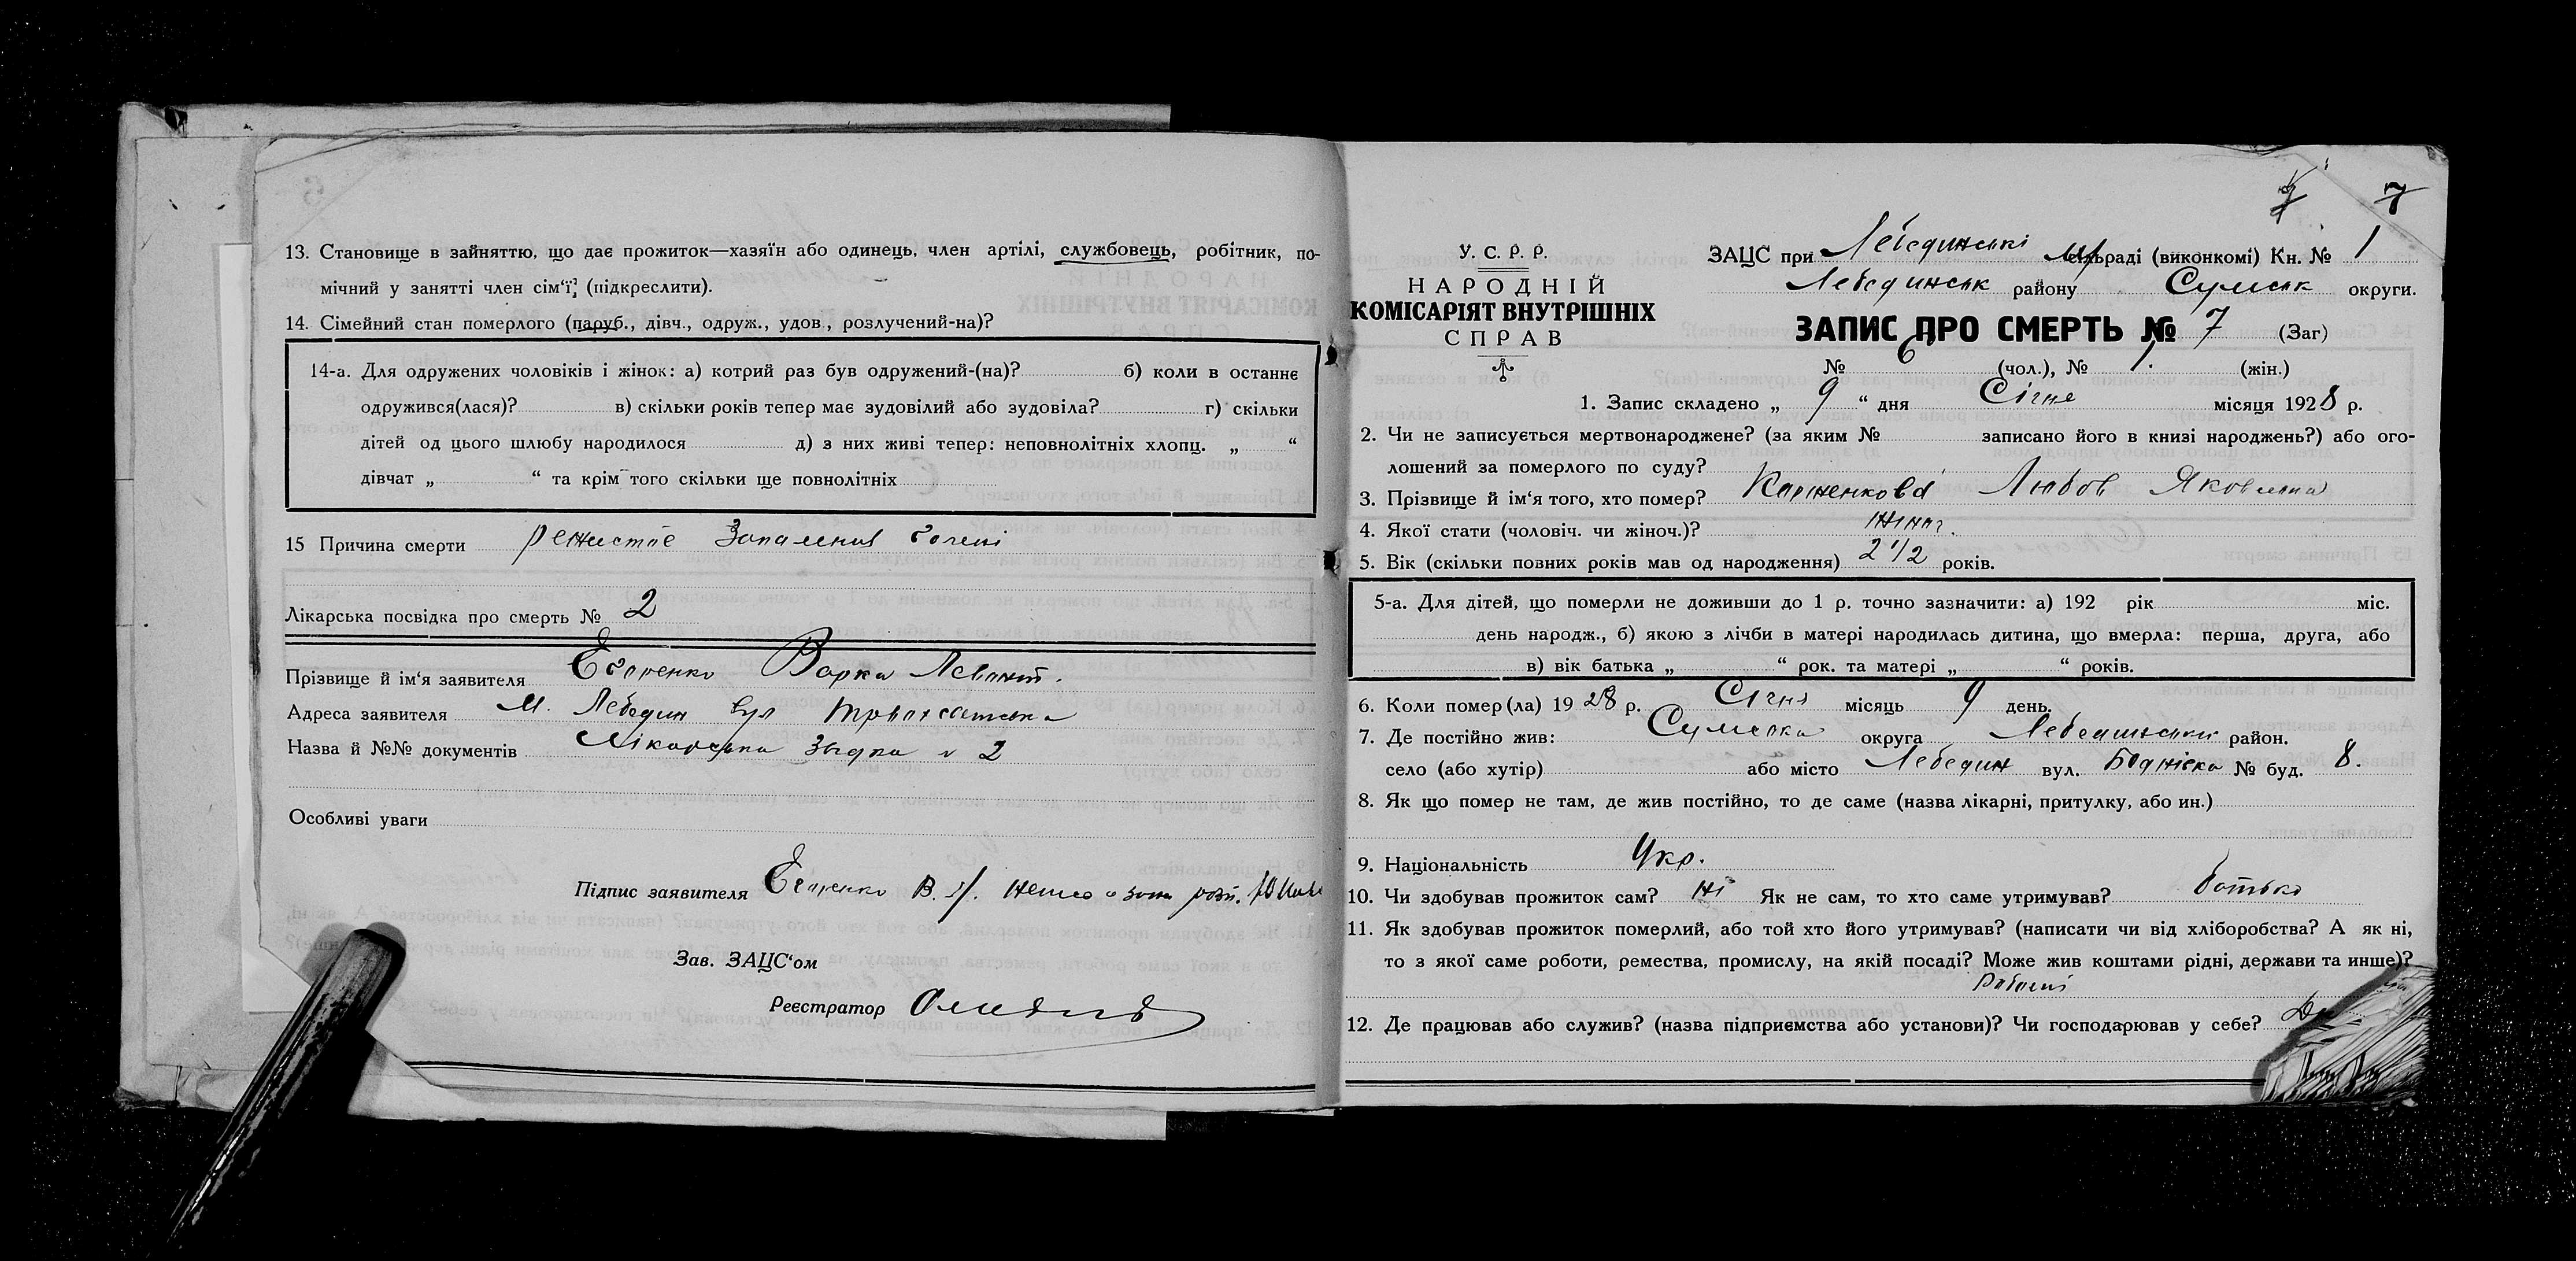 13. Становище в зайняттю, що дає прожиток—хазяїн або одинець, член артілі, службовець, робітник, по-
мічний у занятті член сім'ї, (підкреслити).
14. Сімейний стан померлого (паруб., дівч., одруж., удов., розлучений-на)?
14-а. Для одружених чоловіків і жінок: а) котрий раз був одружений-(на)? б) коли в останнє
одружився(лася)? в) скільки років тепер має зудовілий або зудовіла? г) скільки
дітей од цього шлюбу народилося д) з них живі тепер: неповнолітніх хлопц. „ “
дівчат „ “ та крім того скільки ще повнолітніх
15 Причина смерти Запалення
Лікарська посвідка про смерть № 2
Прізвище й ім'я заявителя Варка
Адреса заявителя м. Лебедин вул
Назва й №№ документів Лікарська № 2
Особливі уваги
Підпис заявителя В.
Зав. ЗАЦС'ом
Реєстратор
7
У. С. Р. Р.
НАРОДНІЙ
КОМІСАРІЯТ ВНУТРІШНІХ
СПРАВ
ЗАЦС при Лебединські сільраді (виконкомі) Кн. № 1
Лебединськ району Сумськ округи.
ЗАПИС ПРО СМЕРТЬ № 7 (Заг)
№ 6 (чол.), № 1. (жін.)
1. Запис складено „ 9 “ дня Січня місяця 1928 р.
2. Чи не записується мертвонароджене? (за яким № записано його в книзі народжень?) або ого-
лошений за померлого по суду?
3. Прізвище й ім'я того, хто помер? Любов Яковлена
4. Якої стати (чоловіч. чи жіноч.)? жіноч.
5. Вік (скільки повних років мав од народження) 2 1/2 років.
5-а. Для дітей, що померли не доживши до 1 р. точно зазначити: а) 192 рік міс.
день народж., б) якою з лічби в матері народилась дитина, що вмерла: перша, друга, або
в) вік батька „ “ рок. та матері „ “ років.
6. Коли помер(ла) 1928 р. Січня місяць 9 день.
7. Де постійно жив: Сумська округа Лебединський район.
село (або хутір) або місто Лебедин вул. № буд. 8.
8. Як що помер не там, де жив постійно, то де саме (назва лікарні, притулку, або ин.)
9. Національність Укр.
10. Чи здобував прожиток сам? ні Як не сам, то хто саме утримував? батько
11. Як здобував прожиток померлий, або той хто його утримував? (написати чи від хліборобства? А як ні,
то з якої саме роботи, ремества, промислу, на якій посаді? Може жив коштами рідні, держави та инше)?
12. Де працював або служив? (назва підприємства або установи)? Чи господарював у себе?